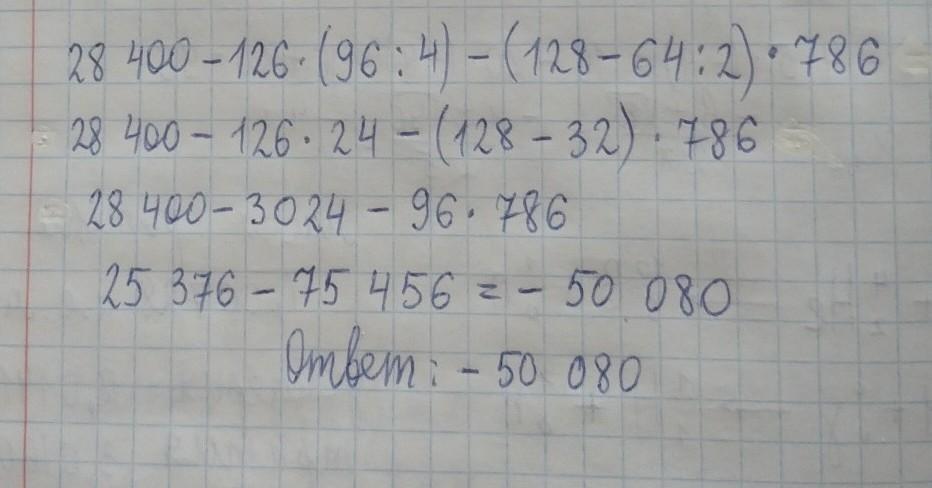 28 400 - 126 · (96 : 4) - (128 - 64 : 2) · 786
28 400 - 126 · 24 - (128 - 32) · 786
28 400 - 3024 - 96 · 786
25 376 - 75 456 = - 50 080
Ответ: - 50 080